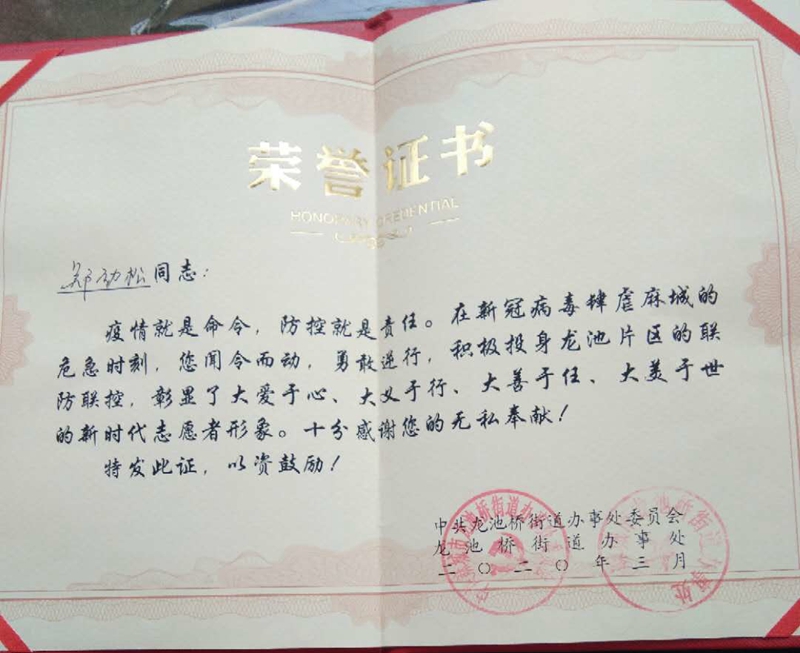 荣誉证书
HONORARY CREDENTIAL
郑劲松同志：
疫情就是命令，防控就是责任。在新冠病毒肆虐麻城的
危急时刻，您闻令而动，勇敢逆行，积极投身龙池片区的联
防联控，彰显了大爱于心、大义于行、大善于任、大美于世
的新时代志愿者形象。十分感谢您的无私奉献！
特发此证，以资鼓励！
中共龙池桥街道办事处委员会
龙池桥街道办事处
二〇二〇年三月